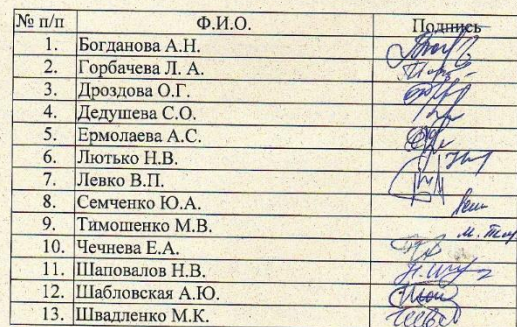 № п/п Ф.И.О. Подпись
1. Богданова А.Н.
2. Горбачева Л. А.
3. Дроздова О.Г.
4. Дедушева С.О.
5. Ермолаева А.С.
6. Лютько Н.В.
7. Левко В.П.
8. Семченко Ю.А.
9. Тимошенко М.В.
10. Чечнева Е.А.
11. Шаповалов Н.В.
12. Шабловская А.Ю.
13. Швадленко М.К.